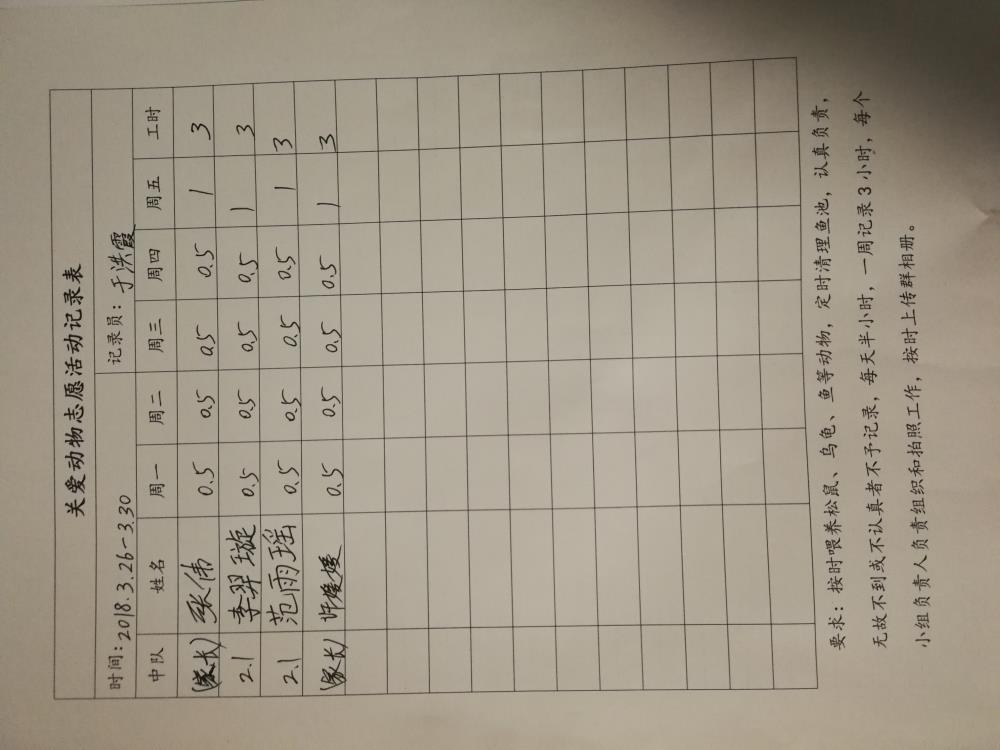 关爱动物志愿活动记录表
时间：2018.3.26-3.30 记录员：于洪霞
中队 姓名 周一 周二 周三 周四 周五 工时
(家长) 张伟 0.5 0.5 0.5 0.5 1 3
2.1 李羿璇 0.5 0.5 0.5 0.5 1 3
2.1 范雨瑶 0.5 0.5 0.5 0.5 1 3
(家长) 许媛媛 0.5 0.5 0.5 0.5 1 3
要求：按时喂养松鼠、乌龟、鱼等动物，定时清理鱼池，认真负责，
无故不到或不认真者不予记录，每天半小时，一周记录3小时，每个
小组负责人负责组织和拍照工作，按时上传群相册。